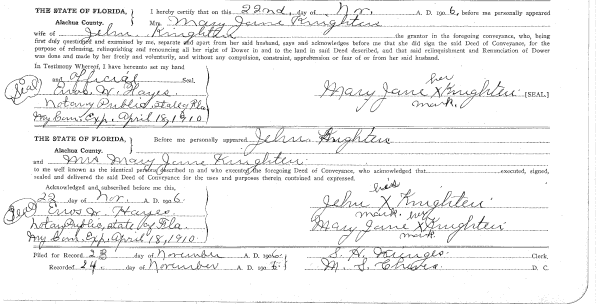 THE STATE OF FLORIDA, I hereby certify that on this 22nd. day of Nov. A. D. 190 6, before me personally appeared
Alachua County. Mrs Mary Jane Knighten
wife of John Knighten the grantor in the foregoing conveyance, who, being
first duly questioned and examined by me, separate and apart from her said husband, says and acknowledges before me that she did sign the said Deed of Conveyance, for the
purpose of releasing, relinquishing and renouncing all her right of Dower in and to the land in said Deed described, and that said relinquishment and Renunciation of Dower
was done and made by her freely and voluntarily, and without any compulsion, constraint, apprehension or fear of or from her said husband.
In Testimony Whereof, I have hereunto set my hand
and Official Seal.
(Seal) Enos W. Hayes her
Notary Public, State of Fla. Mary Jane X Knighten [SEAL.]
My Com. Exp. April 18, 1910. mark.
THE STATE OF FLORIDA, Before me personally appeared John Knighten
Alachua County.
and Mrs Mary Jane Knighten
to me well known as the identical persons described in and who executed the foregoing Deed of Conveyance, who acknowledged that executed, signed,
sealed and delivered the said Deed of Conveyance for the uses and purposes therein contained and expressed.
Acknowledged and subscribed before me this,
22 day of Nov. 190 6. his
(Seal) Enos W. Hayes John X Knighten
Notary Public, State of Fla. mark. her
My Com. Exp. April 18, 1910. Mary Jane X Knighten
mark.
Filed for Record 23 day of November A. D. 1906. S. H. Clerk.
Recorded 24. day of November A. D. 190 6. M. S. D. C.